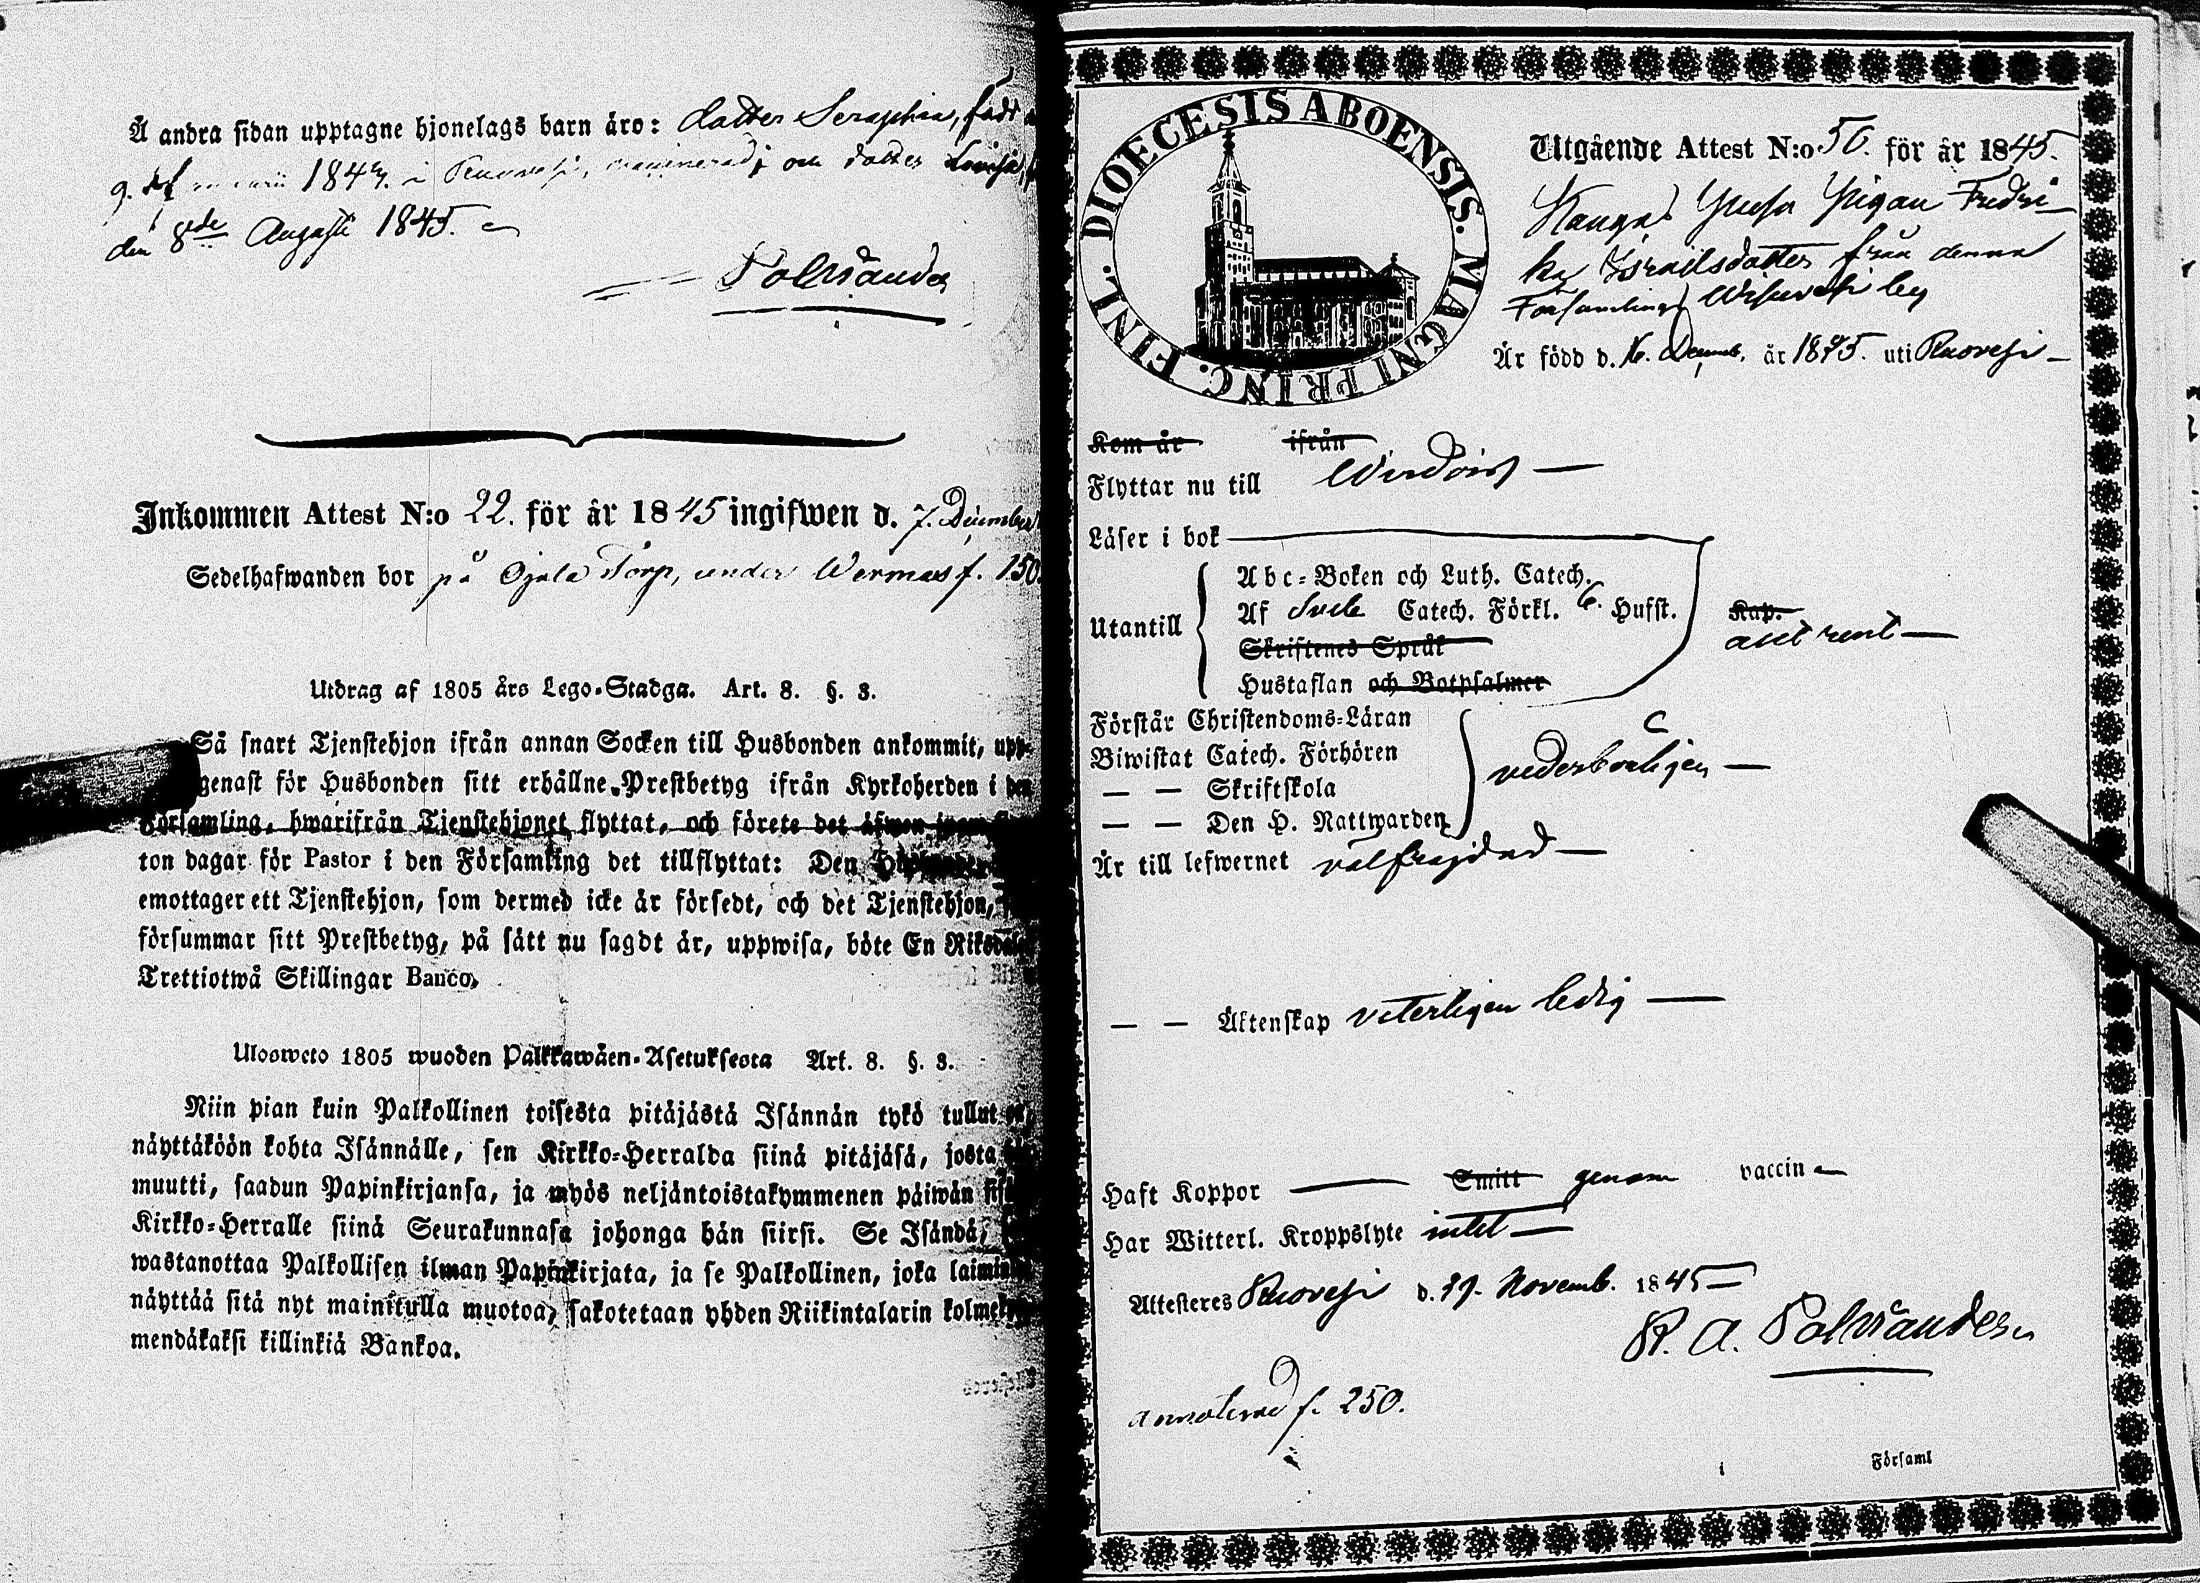 Å andra sidan upptagne hjonelags barn äro: dotter Seraphia, född
1844. i Ruovesi, vaccinerad; och dotter Lovisa,
den 8de Augusti 1845.
Polviander
Inkommen Attest N:o 22. för år 1845 ingifwen d. 7. December
Sedelhafwanden bor på Ojala Torp, under Wermas f. 150.
Utdrag af 1805 års Lego-Stadga. Art. 8. §. 3.
Så snart Tjenstehjon ifrån annan Socken till Husbonden ankommit, upp-
genast för Husbonden sitt erhållne Prestbetyg ifrån Kyrkoherden i den
Församling, hwarifrån Tjenstehjonet flyttat, och förete det äfwen
ton dagar för Pastor i den Församling det tillflyttat: Den
emottager ett Tjenstehjon, som dermed icke är försedt, och det Tjenstehjon,
försummar sitt Prestbetyg, på sätt nu sagdt är, uppwisa, böte En Riksdaler
Trettiotwå Skillingar Banco.
Ulosweto 1805 wuoden Palkkawäen-Asetuksesta Art. 8. §. 3.
Niin pian kuin Palkollinen toisesta pitäjästä Isännän tykö tullut
näyttäköön kohta Isännälle, sen Kirkko-Herralda siinä pitäjäsä, josta
muutti, saadun Papinkirjansa, ja myös neljäntoistakymmenen päiwän
Kirkko-Herralle siinä Seurakunnasa johonga hän siirsi. Se Isändä,
wastanottaa Palkollisen ilman Papinkirjata, ja se Palkollinen, joka
näyttää sitä nyt mainitulla muotoa, sakotetaan yhden Riikintalarin
mendäkaksi killinkiä Bankoa.
DIOECESIS ABOENSIS. MAGNI PRINC. FINL.
Utgående Attest N:o 50. för år 1845.
Kangas Pigan Fredri-
ka Israilsdotter från denna
Församlings Wisuvesi by
Är född d. 16. Decemb. år uti Ruovesi
Kom år ifrån
Flyttar nu till Wirdois
Läser i bok
Utantill
Abc-Boken och Luth. Catech.
Af Sveb. Catech. Förkl. 6. Hufst. Kap.
Skriftenes Språk
allt rent
Hustaflan och Botpsalmer
Förstår Christendoms-Läran
Biwistat Catech. Förhören
— — Skriftskola
vederbörligen
— — Den H. Nattwarden
Är till lefwernet välfrejdad
— — Äktenskap veterligen ledig
Haft Koppor Smitt genom vaccin
Har Witterl. Kroppslyte intet
Attesteres Ruovesi d. Novemb. 1845
R. A. Polviander
annoterad f. 250.
Församl